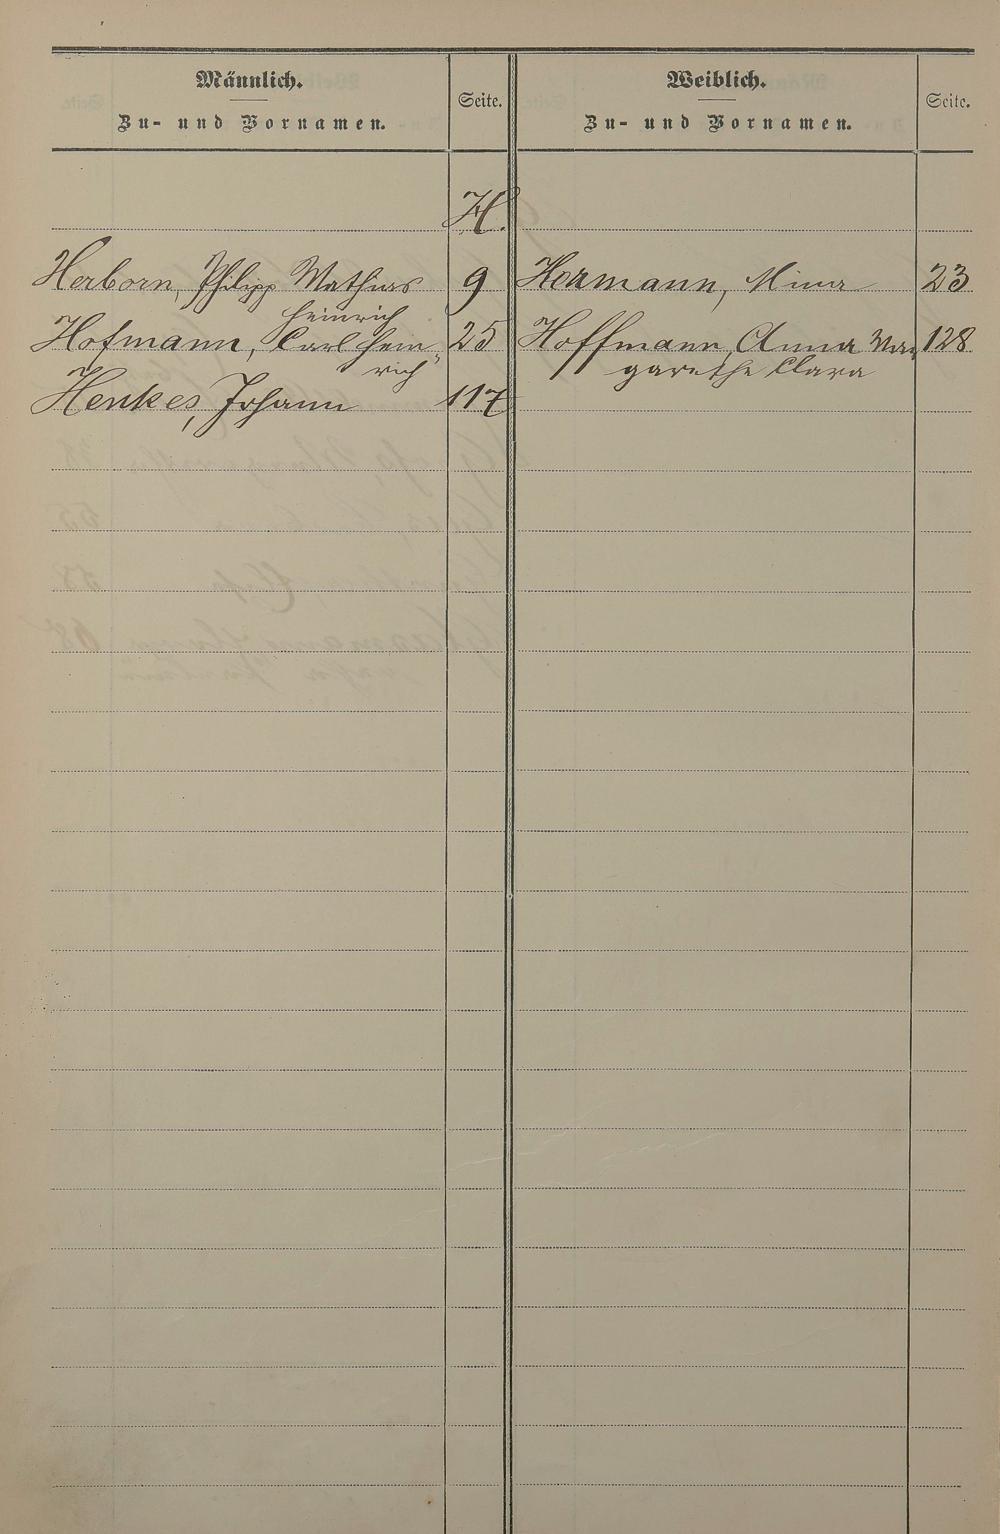 Männlich.
Zu- und Vornamen.
Seite.
Weiblich.
Zu- und Vornamen.
Seite.
H.
Herborn, Philipp Mathias 9
Heinrich
Hofmann, Carl Hein- 25
rich
Henkes, Johann 117
Hermann, Mina 23
Hoffmann, Anna Mar 128
garethe Clara